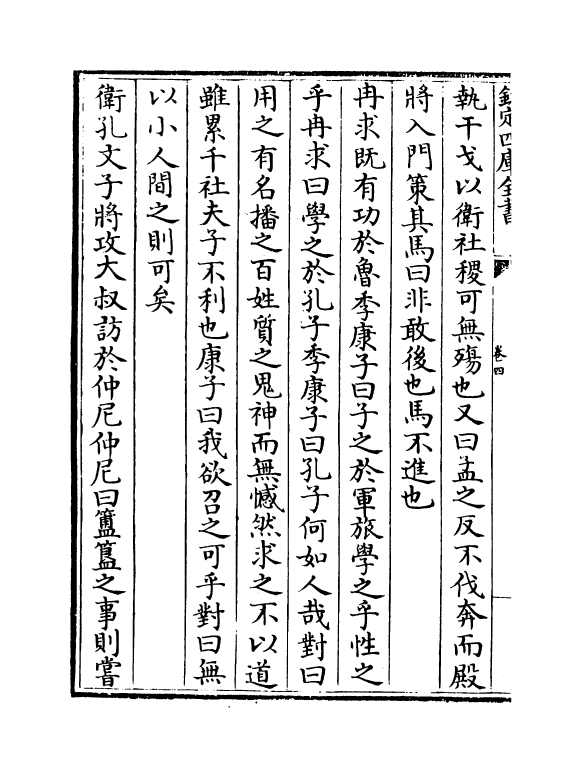 欽定四庫全書
卷四
執干戈以衛社稷可無殤也又曰孟之反不伐奔而殿
將入門策其馬曰非敢後也馬不進也
冉求既有功於魯季康子曰子之於軍旅學之乎性之
乎冉求曰學之於孔子季康子曰孔子何如人哉對曰
用之有名播之百姓質之鬼神而無憾然求之不以道
雖累千社夫子不利也康子曰我欲召之可乎對曰無
以小人間之則可矣
衛孔文子將攻大叔訪於仲尼仲尼曰簠簋之事則嘗